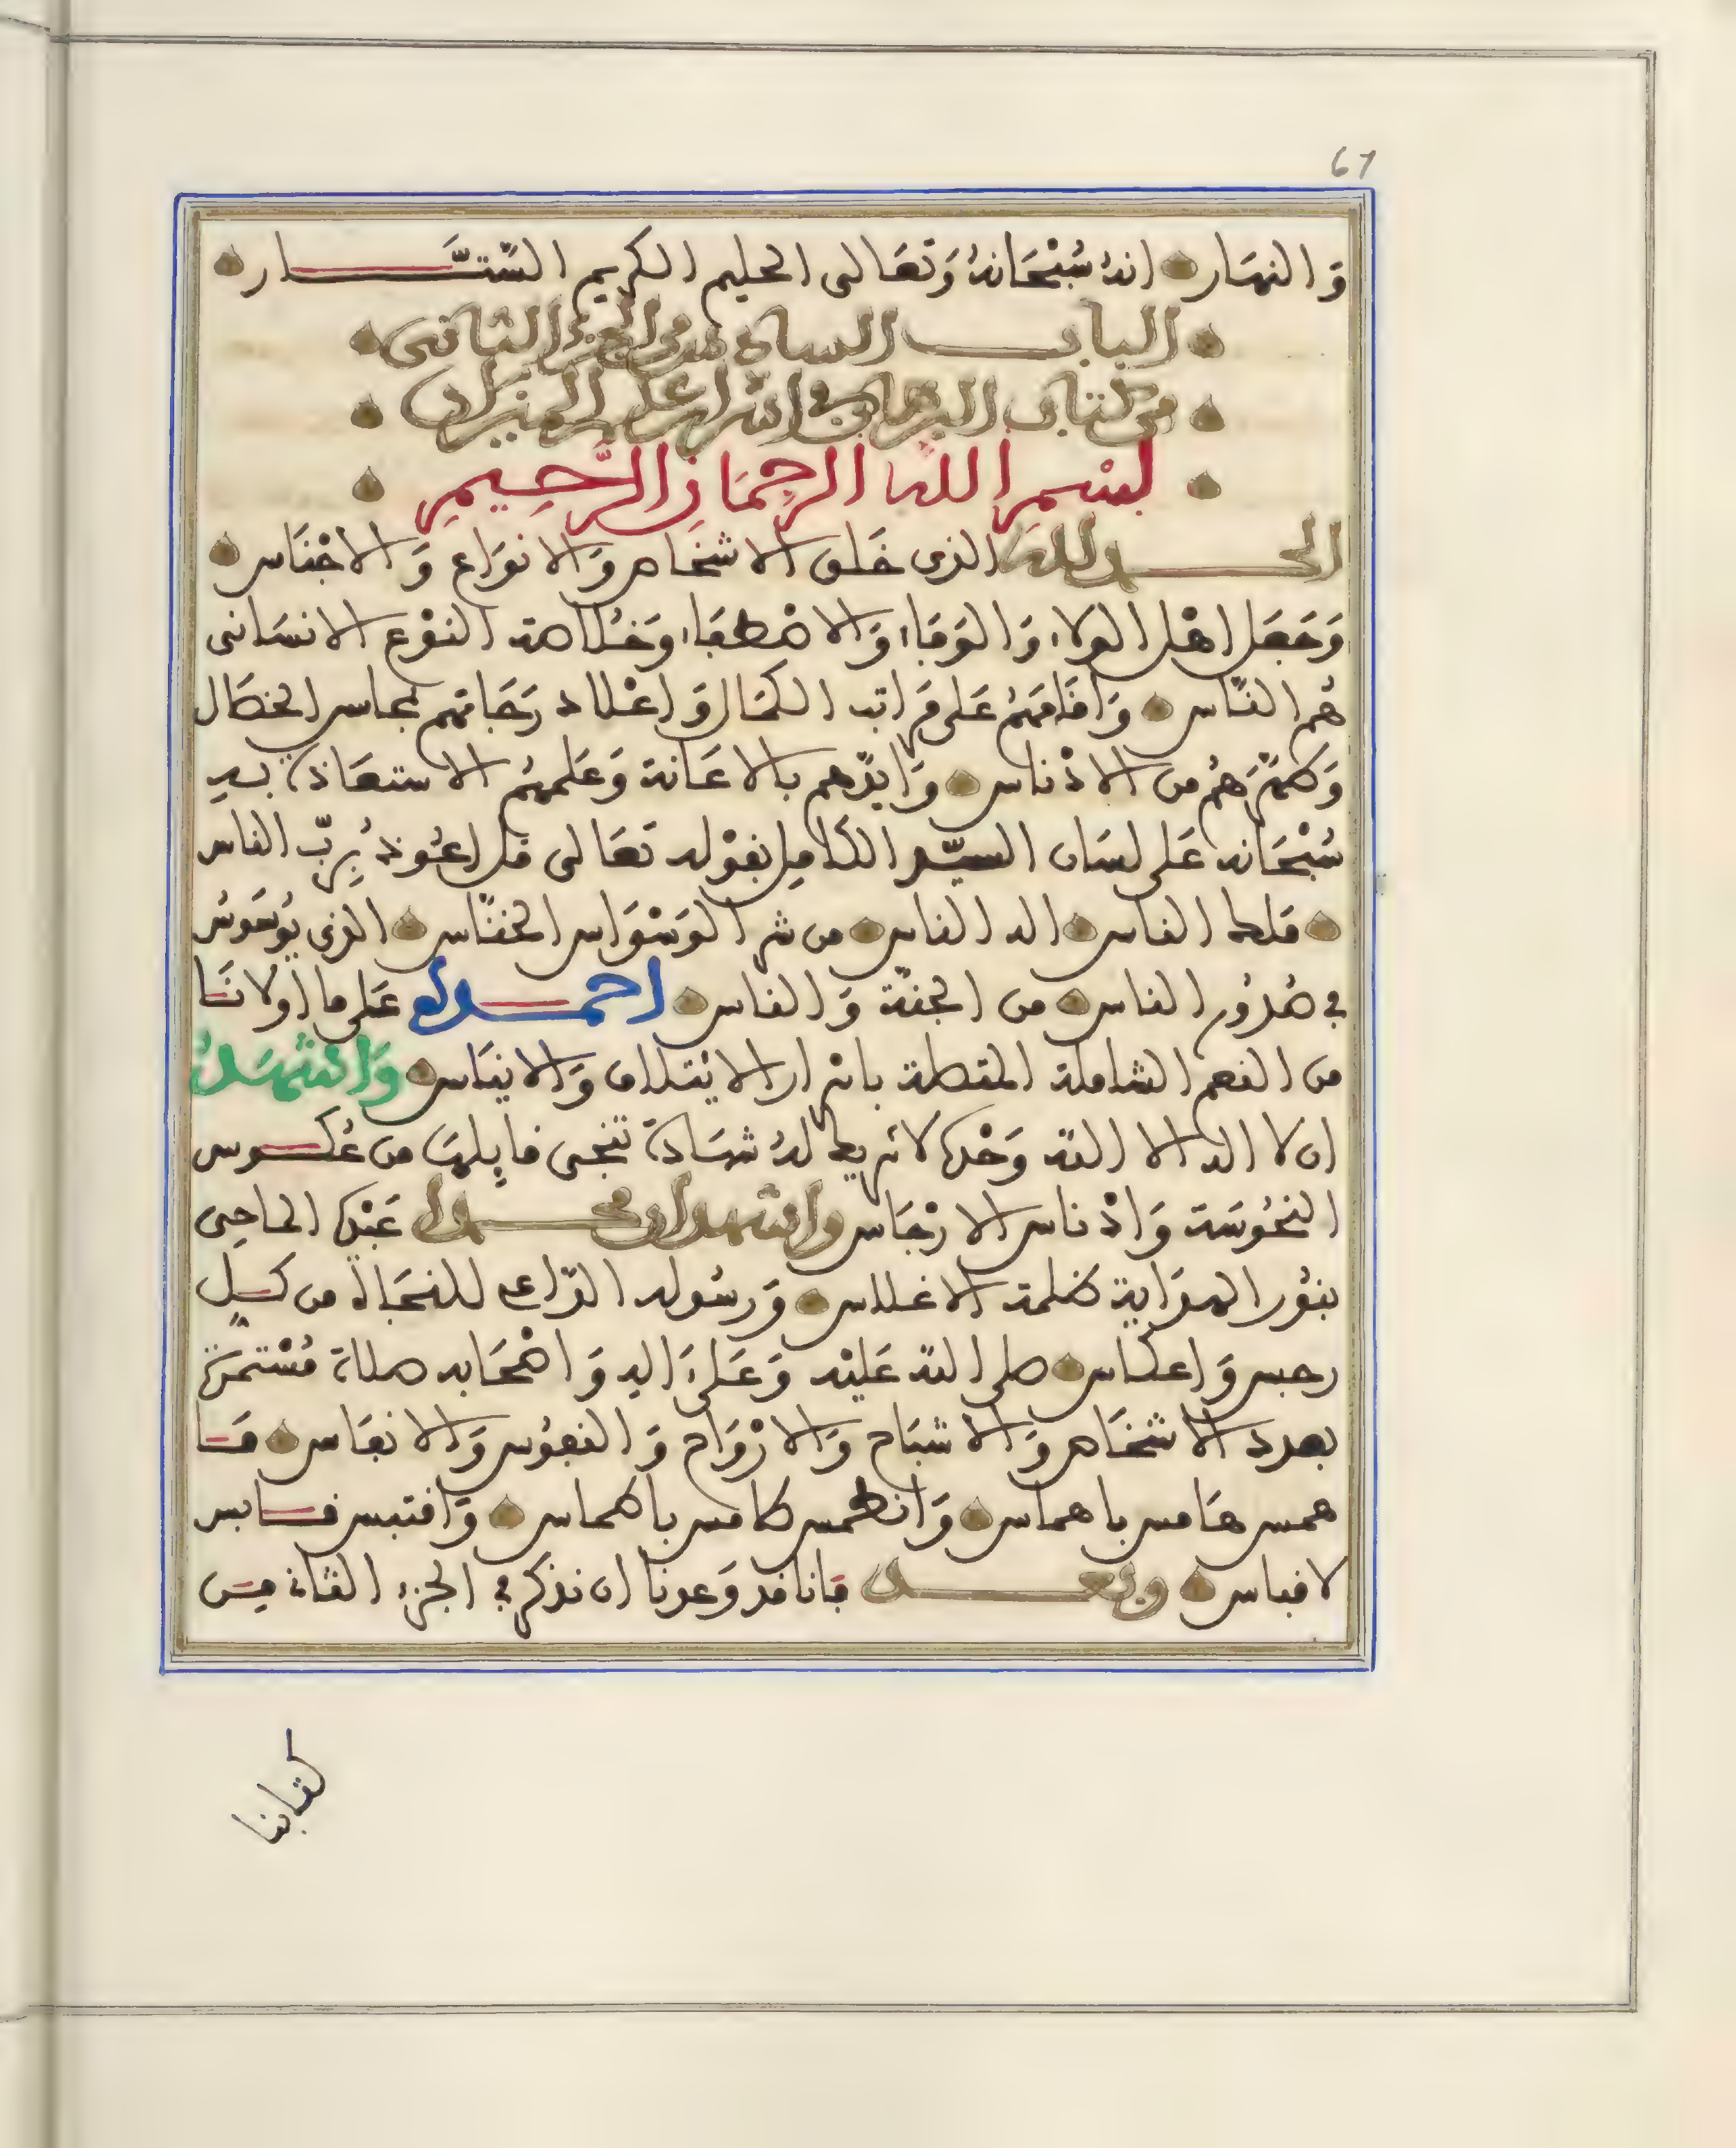 67
وَالنهَار انهُ سُبْحَانهُ وَتعَالى الحليم الكريم السَّتَّـار
البـاب السابع من الجزء الثانى
من كتاب البرهان فى اسرار علم الميزان
بسْمِ الله الرحمَانِ الرَّحِيمِ
الحـمد لله الذى خَلق الاشخَاص وَالانوَاع وَالاجْنَاس
وَجَعَل اهْل الولاء وَالوَفَاء وَالاصْطفَاء وَخُلاصة النوْع الانسَانى
هُم النَّاس وَاقَامَهُمْ عَلى مَرَاتب الكمَال وَاعْلا دَرَجَاتهم بمحاسن الخصَال
وَطهَّرَهُمْ من الادْناس وَايدّهم بالاعَانة وَعَلمهُم الاستعَاذة به
سُبْحَانه عَلى لسَان السيّد الكامِل بقوْله تعَالى قل اعُوذُ بِرَبّ الناس
ملك الناس اله الناس من شر الوَسْوَاس الخنَّاس الذى يُوَسْوسُ
فى صُدُور الناس من الجنّة وَالناس احمـده عَلى ما اولانَـا
من النعم الشاملة المتصلة باسرار الايْتلاف وَالايناس وَاشْهَدُ
ان لا اله الا اللهُ وَحْدهُ لا شريك لهُ شهَادة تنجى قايلهَا من عُكـوس
النحُوسَة وَادْناس الارْجَاس واشهد ان محـمدا عَبْدُه الماحِى
بنُور الهدَاية ظلمة الاغلاس وَرسُوله الدّاعى للنجَاة من كـلّ
رجس وَاعكاس صلى الله عَليْه وَعَلىَ الهِ وَاصْحَابه صلاة مُسْتمرَّة
بعدد الاشخَاص وَالاشبَاح وَالارْوَاح وَالنفوُس وَالانفَاس مَـا
همس هَامس باهماس وَانطمس طامس باطماس وَاقتبس قـابس
لاقباس وبعـد فَانا قد وَعدنا ان نذكر فى الجزء الثانى مِـن
كتابنا